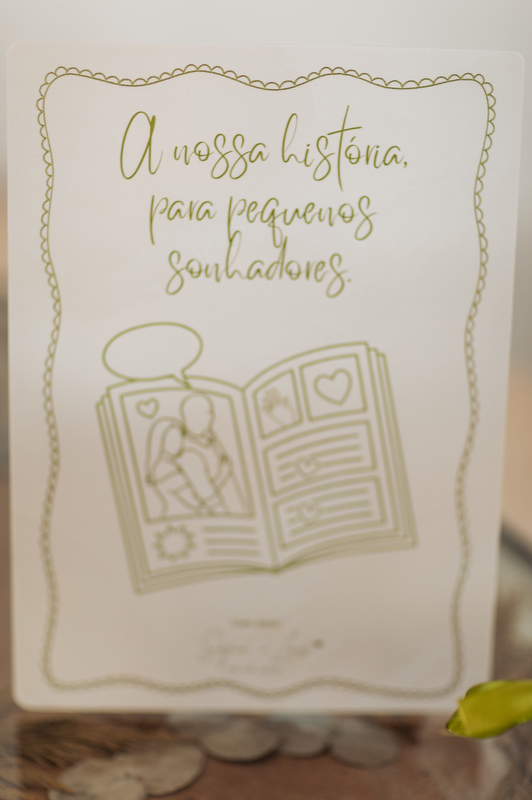 A nossa história,
para pequenos
sonhadores.